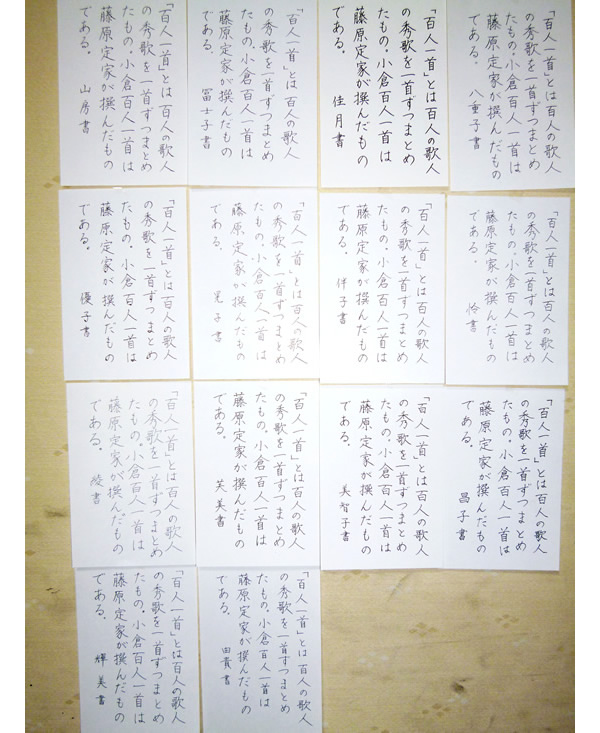 「百人一首」とは百人の歌人
の秀歌を一首ずつまとめ
たもの。小倉百人一首は
藤原定家が撰んだもの
である。 八重子書
「百人一首」とは百人の歌人
の秀歌を一首ずつまとめ
たもの。小倉百人一首は
藤原定家が撰んだもの
である。 佳月書
「百人一首」とは百人の歌人
の秀歌を一首ずつまとめ
たもの。小倉百人一首は
藤原定家が撰んだもの
である。 冨士子書
「百人一首」とは百人の歌人
の秀歌を一首ずつまとめ
たもの。小倉百人一首は
藤原定家が撰んだもの
である。 山房書
「百人一首」とは百人の歌人
の秀歌を一首ずつまとめ
たもの。小倉百人一首は
藤原定家が撰んだもの
である。 怜書
「百人一首」とは百人の歌人
の秀歌を一首ずつまとめ
たもの。小倉百人一首は
藤原定家が撰んだもの
である。 伴子書
「百人一首」とは百人の歌人
の秀歌を一首ずつまとめ
たもの。小倉百人一首は
藤原定家が撰んだもの
である。 晃子書
「百人一首」とは百人の歌人
の秀歌を一首ずつまとめ
たもの。小倉百人一首は
藤原定家が撰んだもの
である。 優子書
「百人一首」とは百人の歌人
の秀歌を一首ずつまとめ
たもの。小倉百人一首は
藤原定家が撰んだもの
である。 昌子書
「百人一首」とは百人の歌人
の秀歌を一首ずつまとめ
たもの。小倉百人一首は
藤原定家が撰んだもの
である。 美智子書
「百人一首」とは百人の歌人
の秀歌を一首ずつまとめ
たもの。小倉百人一首は
藤原定家が撰んだもの
である。 芙美書
「百人一首」とは百人の歌人
の秀歌を一首ずつまとめ
たもの。小倉百人一首は
藤原定家が撰んだもの
である。 綾書
「百人一首」とは百人の歌人
の秀歌を一首ずつまとめ
たもの。小倉百人一首は
藤原定家が撰んだもの
である。 田貴書
「百人一首」とは百人の歌人
の秀歌を一首ずつまとめ
たもの。小倉百人一首は
藤原定家が撰んだもの
である。 輝美書